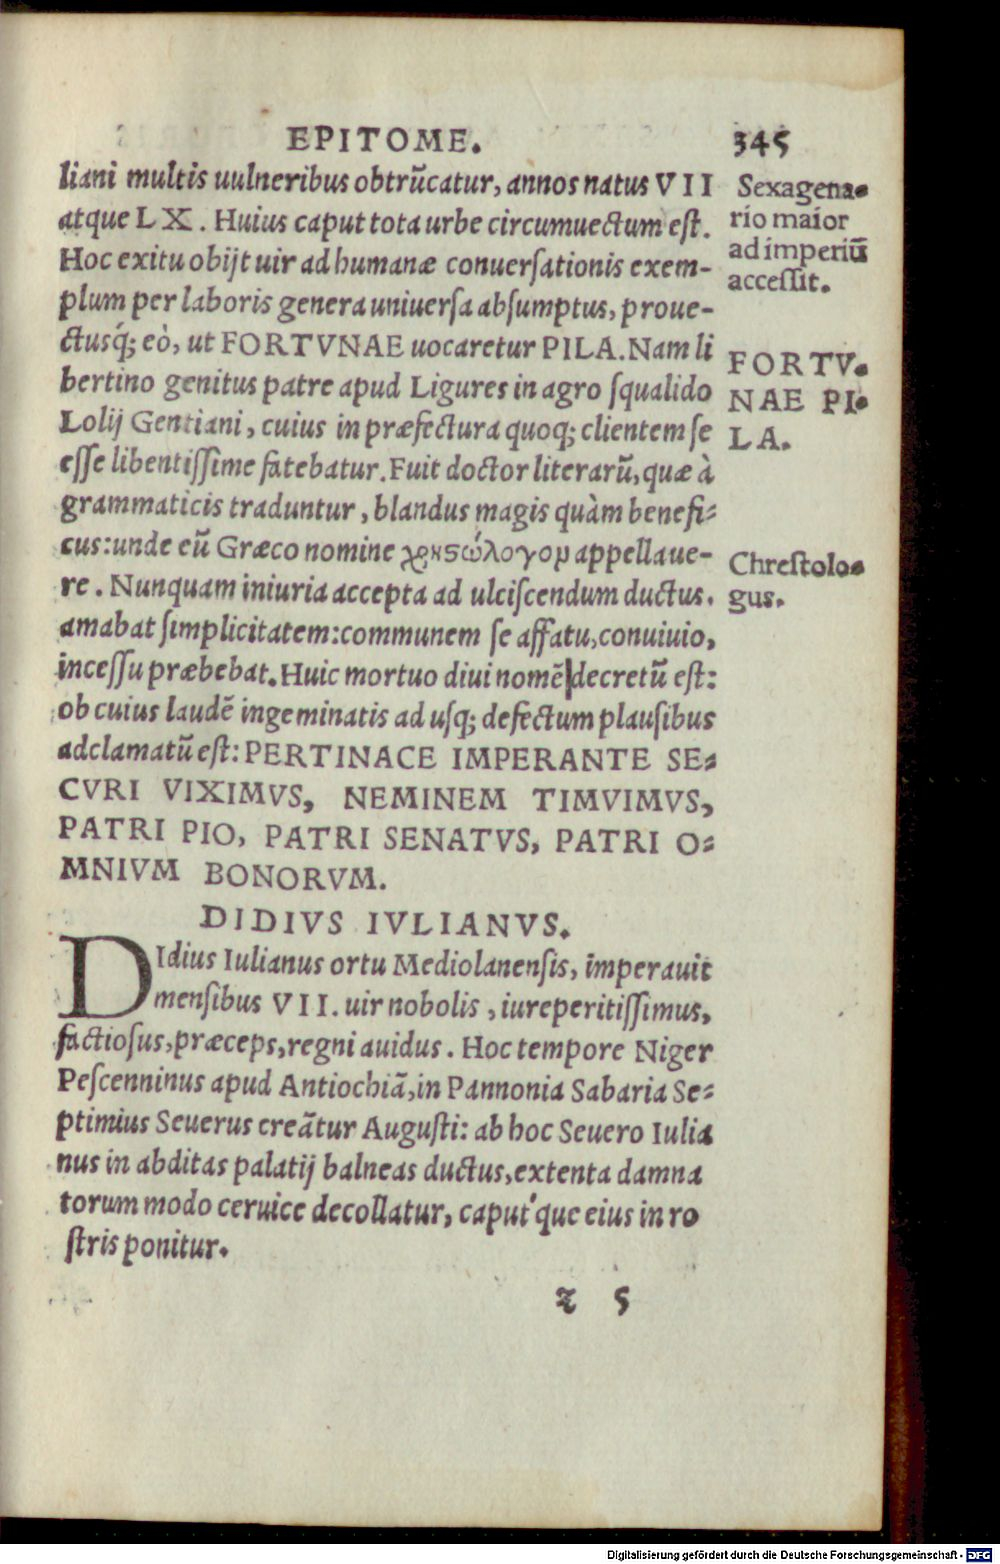 EPITOME. 345
liani multis uulneribus obtrũcatur, annos natus VII
atque LX. Huius caput tota urbe circumuectum est.
Hoc exitu obijt uir ad humanæ conuersationis exem-
plum per laboris genera uniuersa absumptus, proue-
ctusq́; eò, ut FORTVNAE uocaretur PILA. Nam li
bertino genitus patre apud Ligures in agro squalido
Lolij Gentiani, cuius in præfectura quoq; clientem se
esse libentissime fatebatur. Fuit doctor literarũ, quæ à
grammaticis traduntur, blandus magis quàm benefi-
cus: unde eũ Græco nomine χρηϛώλογομ appellaue-
re. Nunquam iniuria accepta ad ulciscendum ductus.
amabat simplicitatem: communem se affatu, conuiuio,
incessu præbebat. Huic mortuo diui nomẽ decretũ est:
ob cuius laudẽ ingeminatis ad usq; defectum plausibus
adclamatũ est: PERTINACE IMPERANTE SE-
CVRI VIXIMVS, NEMINEM TIMVIMVS,
PATRI PIO, PATRI SENATVS, PATRI O-
MNIVM BONORVM.
DIDIVS IVLIANVS.
DIdius Iulianus ortu Mediolanensis, imperauit
mensibus VII. uir nobolis, iureperitissimus,
factiosus, præceps, regni auidus. Hoc tempore Niger
Pescenninus apud Antiochiã, in Pannonia Sabaria Se-
ptimius Seuerus creãtur Augusti: ab hoc Seuero Iulia
nus in abditas palatij balneas ductus, extenta damna
torum modo ceruice decollatur, caput́que eius in ro
stris ponitur.
z 5
Sexagena-
rio maior
ad imperiũ
accessit.
FORTV-
NAE PI-
LA.
Chrestolo-
gus.
Digitalisierung gefördert durch die Deutsche Forschungsgemeinschaft - DFG